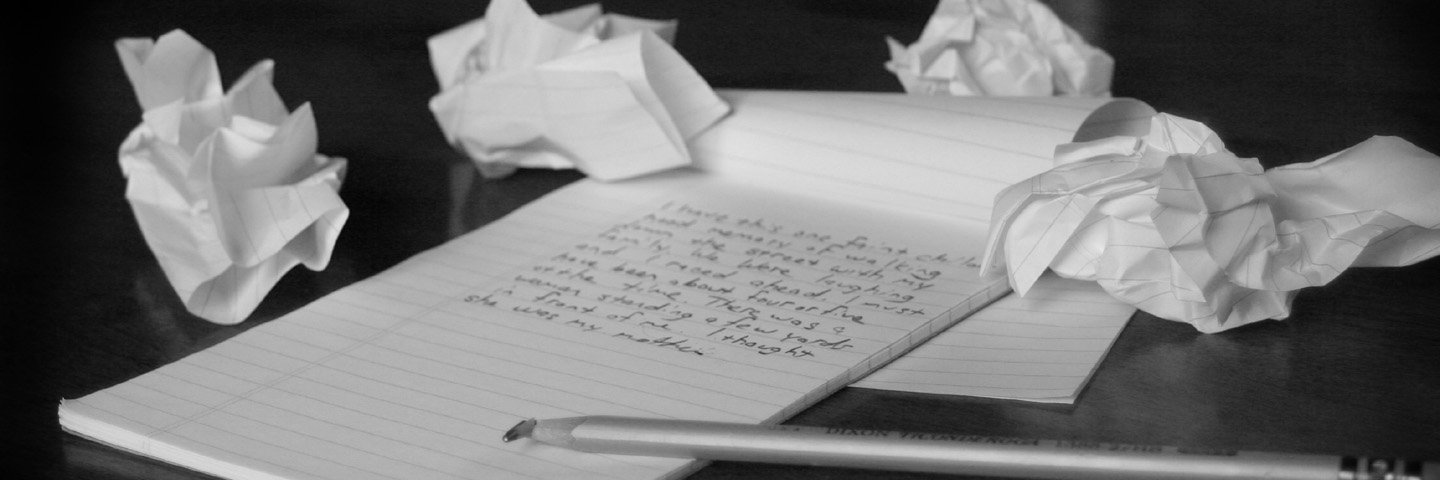 I have this one faint
hood memory of walking
down the street with my
family. We were laughing
and I raced ahead. I must
have been about four or five
at the time. There was a
woman standing a few yards
in front of me. I thought
she was my mother
DIXON TICONDEROGA